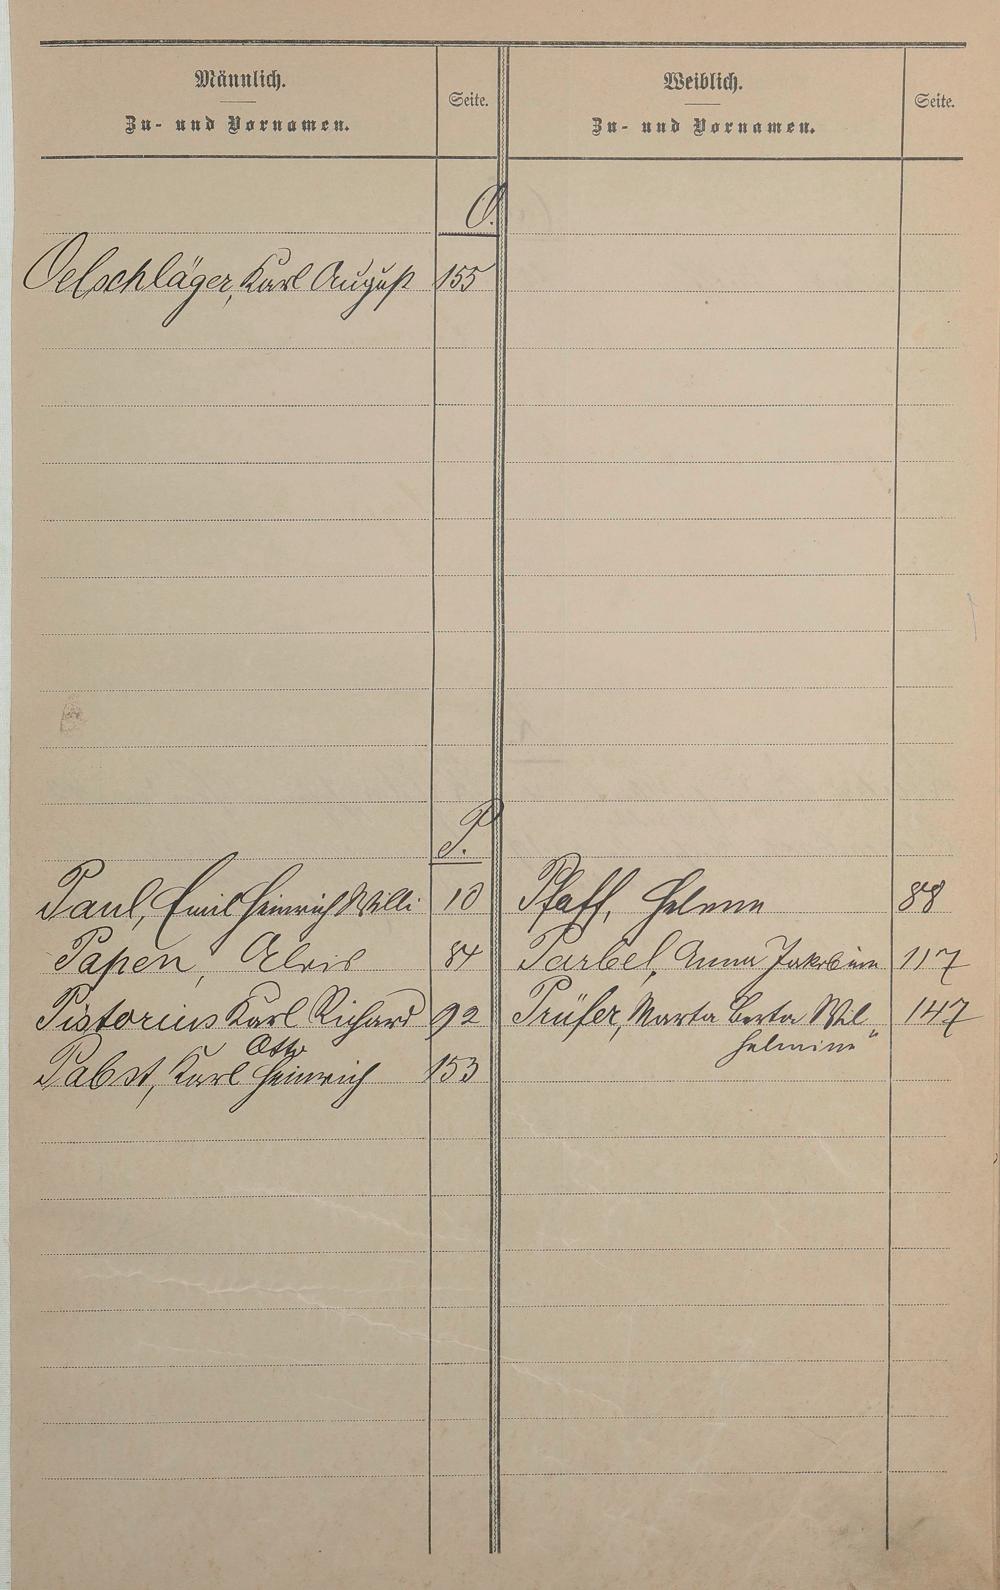 Männlich.
Zu- und Vornamen.
Seite.
Weiblich.
Zu- und Vornamen.
Seite.
O.
Oelschläger, Karl August 155
P.
Paul, Emil Heinrich Willi 10
Pfaff, Helene 88
Papen, Alois 84
Parbel, Anna Jakobine 117
Pistorius Karl Richard 92
Prüfer, Marta Berta Wil„
helmine" 147
Otto
Pabst, Karl Heinrich 153